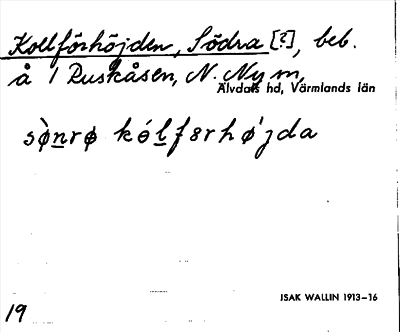 Kollförhöjden, Södra [?], beb.
å 1 Ruskåsen, N. Ny m,
Älvdals hd, Värmlands län
sø̀nrø kólf8rhø'jda
ISAK WALLIN 1913–16
19